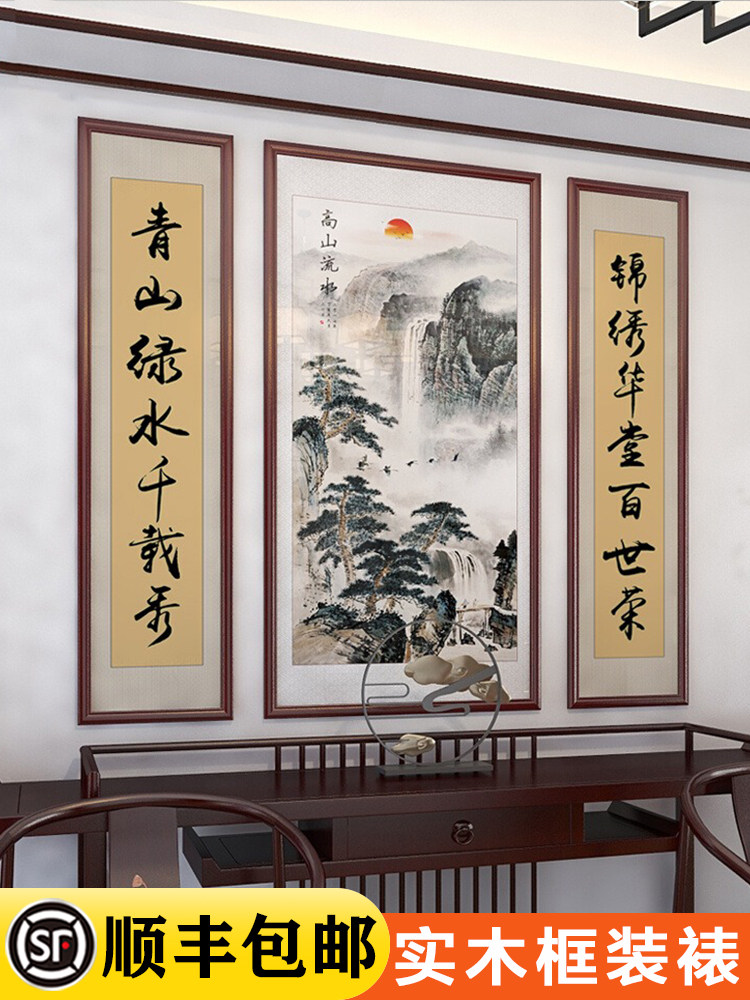 青山绿水千载秀
高山流水
锦绣华堂百世荣
SF
顺丰包邮
实木框装裱